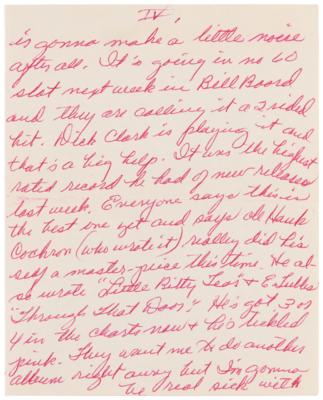 IV.
is gonna make a little noise
after all. It's going in no 60
slot next week in Bill Board
and they are calling it a 2 sided
hit. Dick Clark is playing it and
that's a big help. It was the highest
rated record he had of new releases
last week. Everyone says this is
the best one yet and says ole Hank
Cochron (who wrote it) really did his
self a master-piece this time. He al-
so wrote "Little Bitty Tear" & E. Tubbs'
"Through That Door." He's got 3 or
4 in the charts now & he's tickled
pink. They want me to do another
album right away but I'm gonna
be real sick with